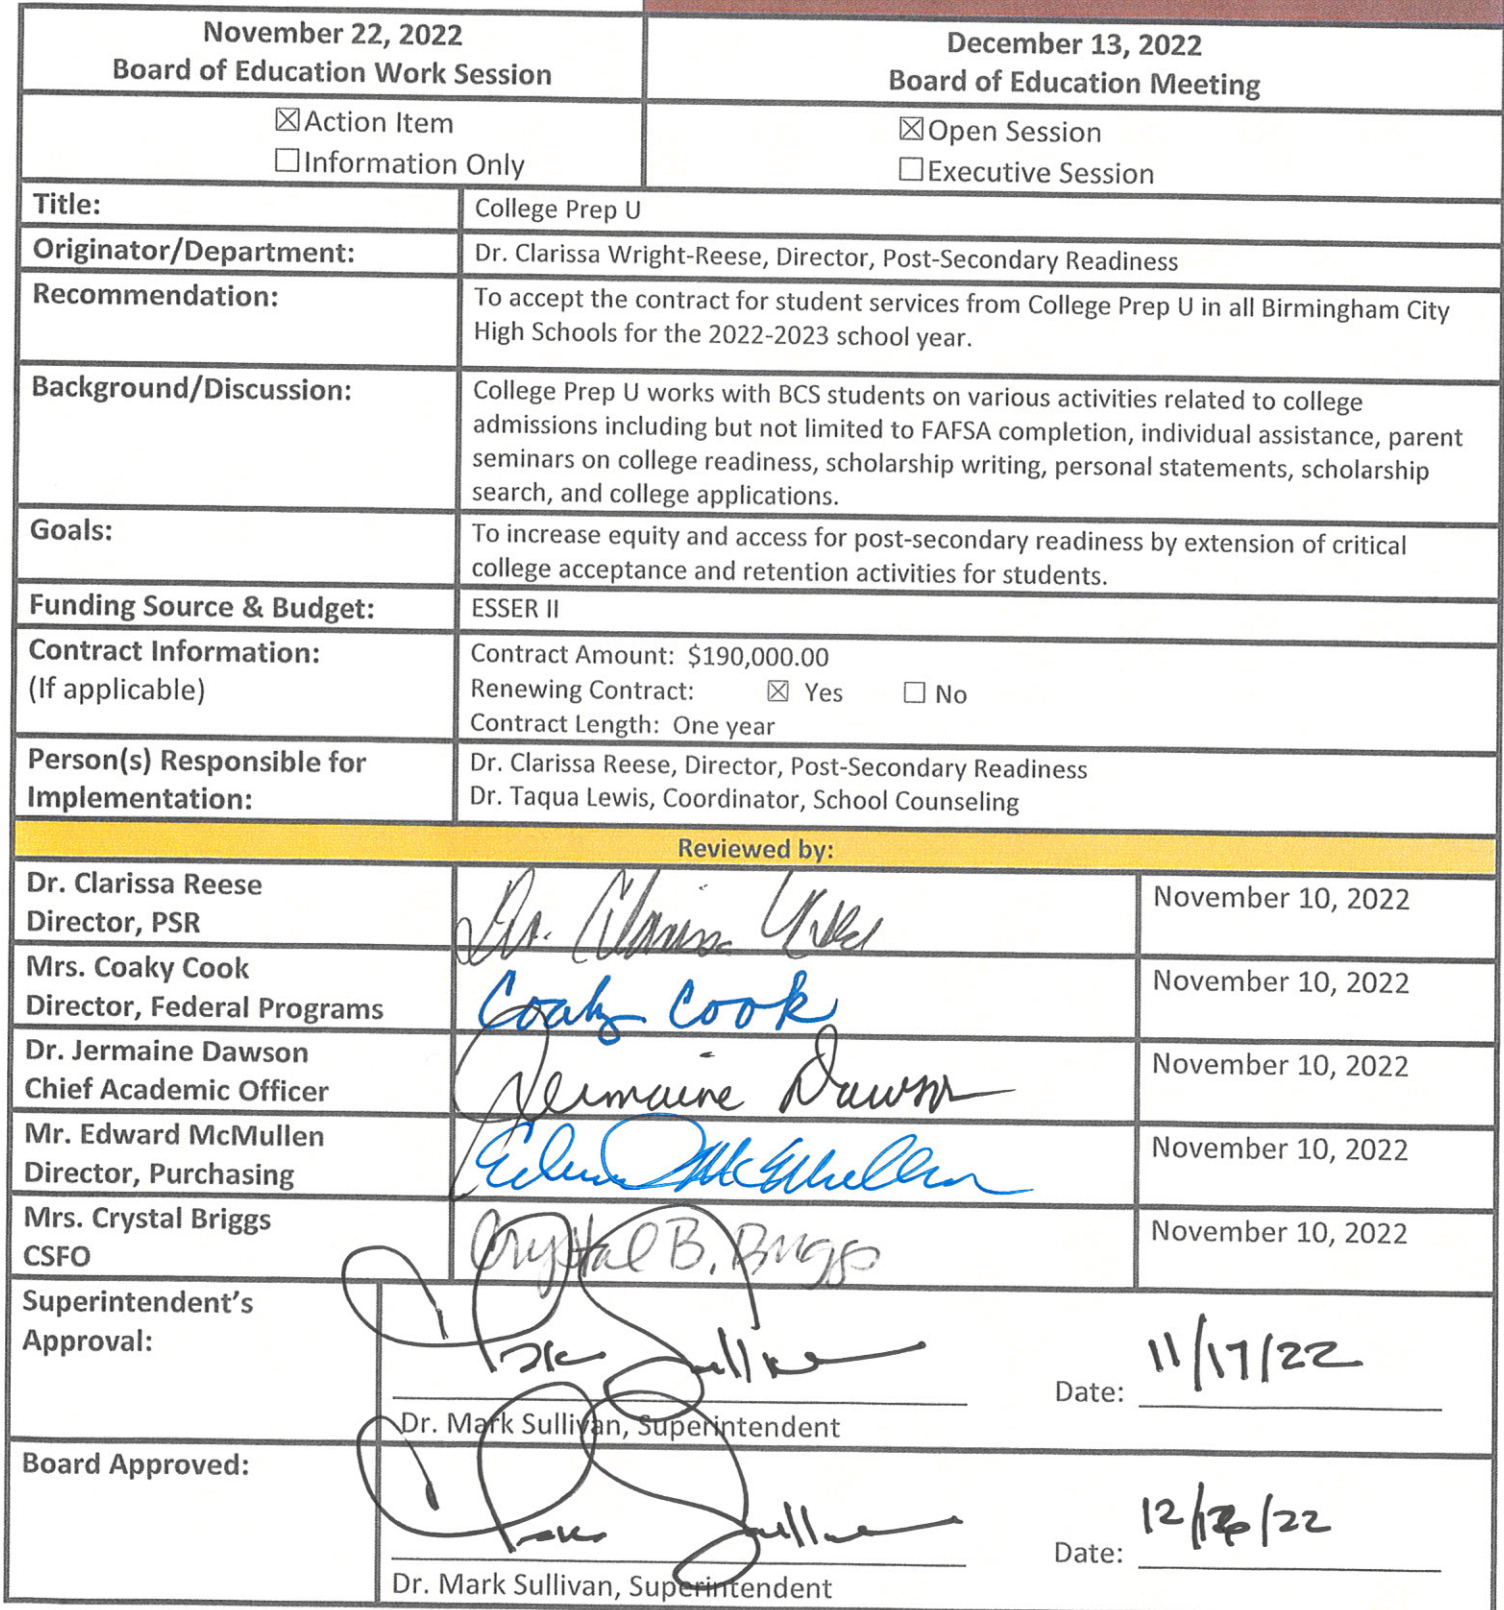 November 22, 2022
Board of Education Work Session
December 13, 2022
Board of Education Meeting
☒Action Item
☐Information Only
☒Open Session
☐Executive Session
Title:
College Prep U
Originator/Department:
Dr. Clarissa Wright-Reese, Director, Post-Secondary Readiness
Recommendation:
To accept the contract for student services from College Prep U in all Birmingham City
High Schools for the 2022-2023 school year.
Background/Discussion:
College Prep U works with BCS students on various activities related to college
admissions including but not limited to FAFSA completion, individual assistance, parent
seminars on college readiness, scholarship writing, personal statements, scholarship
search, and college applications.
Goals:
To increase equity and access for post-secondary readiness by extension of critical
college acceptance and retention activities for students.
Funding Source & Budget:
ESSER II
Contract Information:
(If applicable)
Contract Amount: $190,000.00
Renewing Contract: ☒ Yes ☐ No
Contract Length: One year
Person(s) Responsible for
Implementation:
Dr. Clarissa Reese, Director, Post-Secondary Readiness
Dr. Taqua Lewis, Coordinator, School Counseling
Reviewed by:
Dr. Clarissa Reese
Director, PSR
Dr. Clarissa
November 10, 2022
Mrs. Coaky Cook
Director, Federal Programs
Coaky Cook
November 10, 2022
Dr. Jermaine Dawson
Chief Academic Officer
Jermaine Dawson
November 10, 2022
Mr. Edward McMullen
Director, Purchasing
Edward McMullen
November 10, 2022
Mrs. Crystal Briggs
CSFO
Crystal B. Briggs
November 10, 2022
Superintendent's
Approval:
Mark Sullivan
Date: 11/17/22
Dr. Mark Sullivan, Superintendent
Board Approved:
Mark Sullivan
Date:
Dr. Mark Sullivan, Superintendent